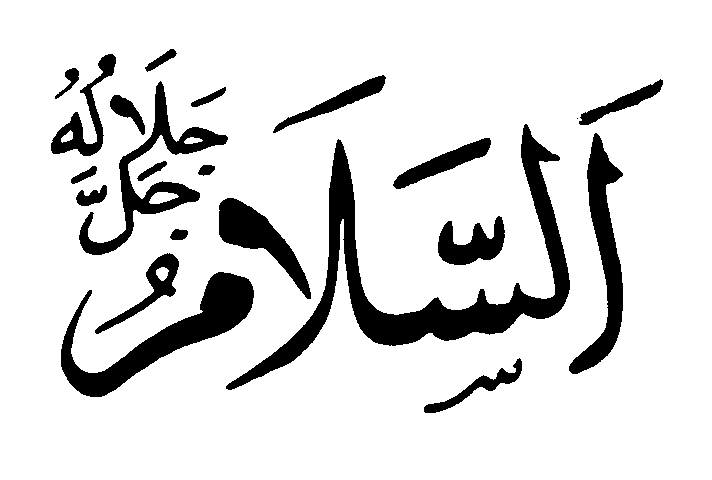 اَلسَّلَامُ
جَلَّ جَلَالُهُ